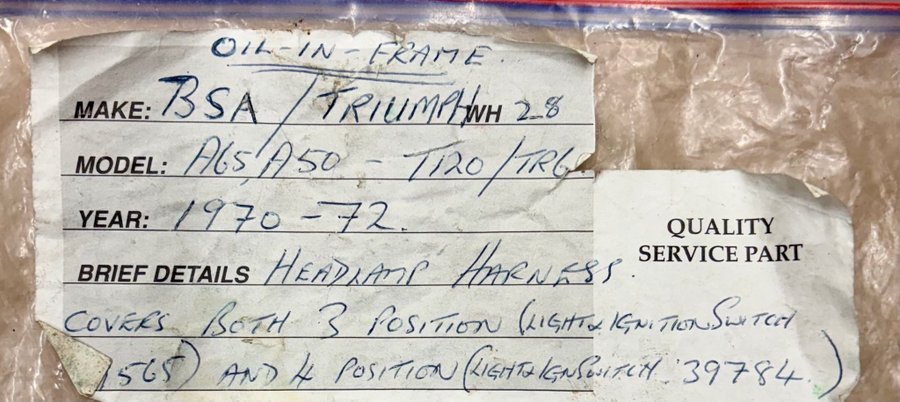 OIL-IN-FRAME
MAKE: BSA / TRIUMPH WH 28
MODEL: A65/A50 - T120/TR6
YEAR: 1970-72.
QUALITY
SERVICE PART
BRIEF DETAILS HEADLAMP HARNESS.
COVERS BOTH 3 POSITION (LIGHT & IGNITION SWITCH
1565) AND 4 POSITION (LIGHT & IGN SWITCH 39784.)